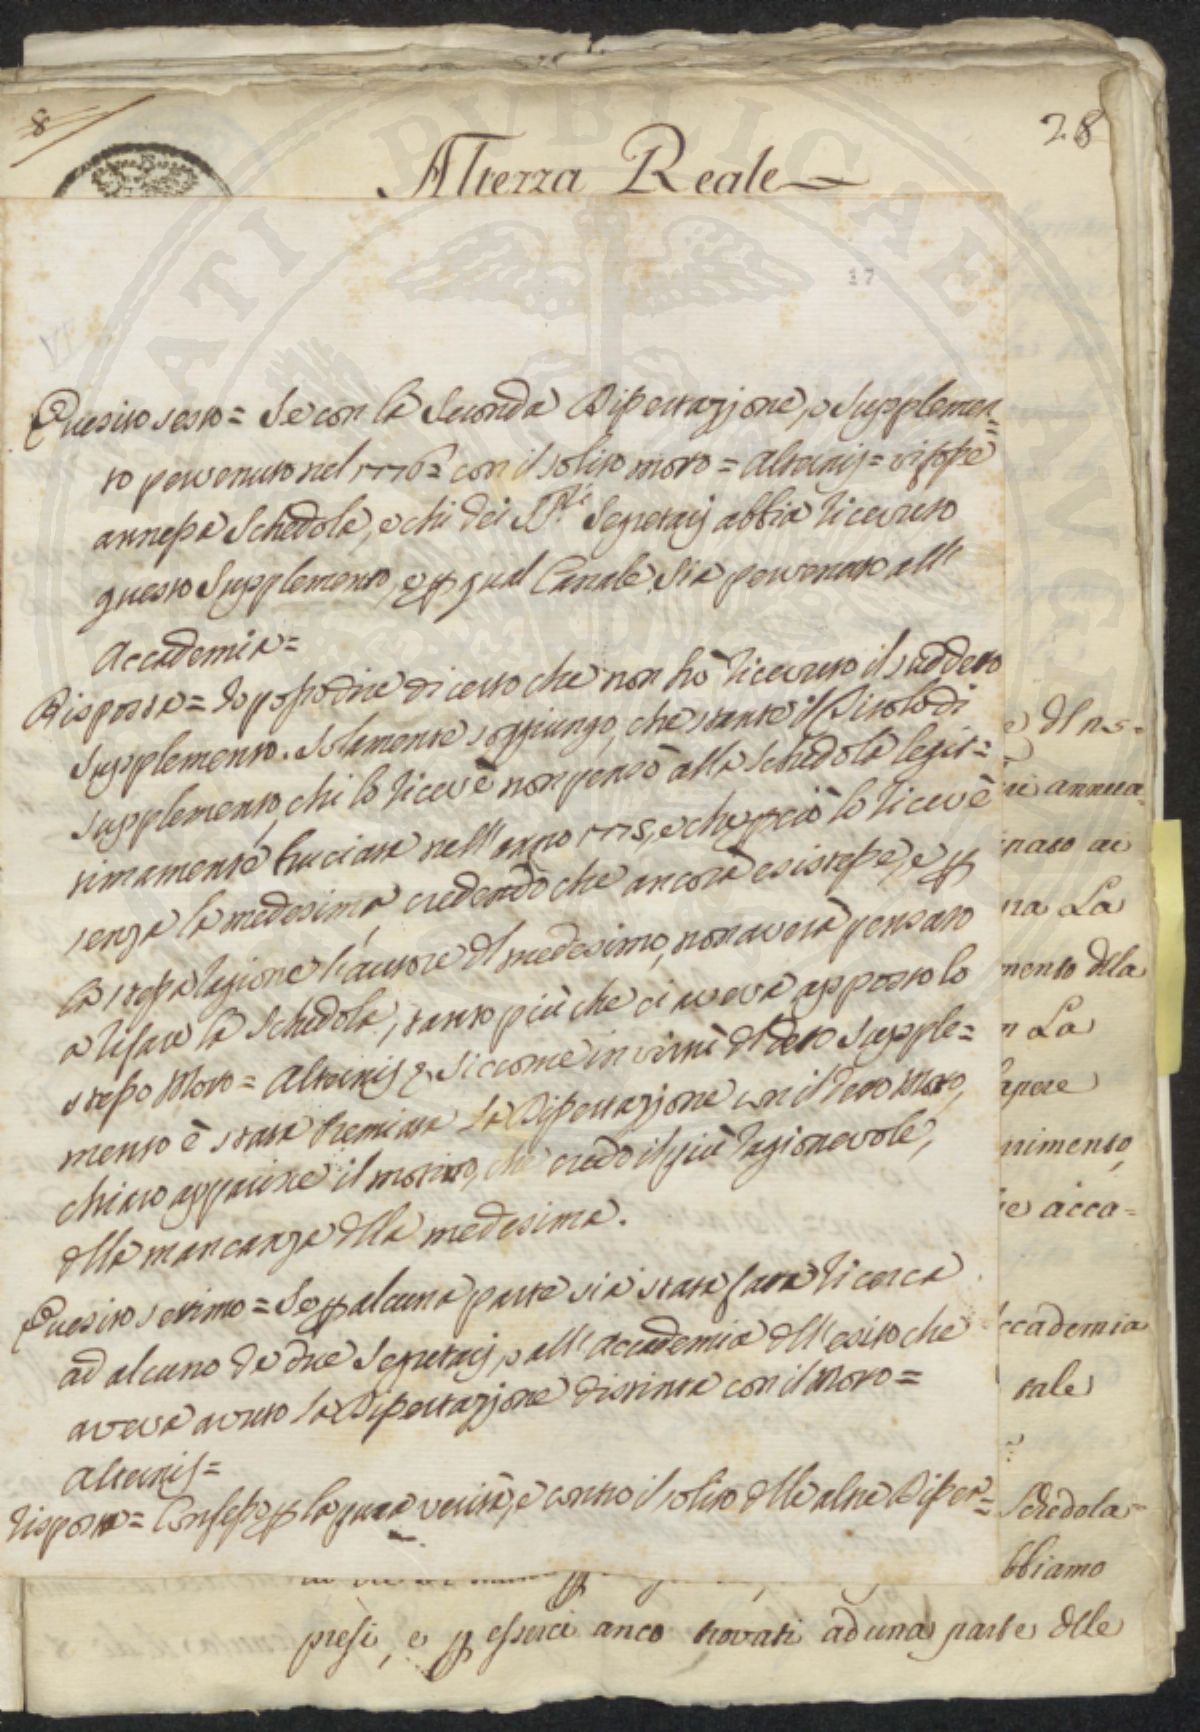 8
28
Altezza Reale
17
VI
Quesito sesto = Se con la seconda Dissertazione, o Supplemen=
to pervenuto nel 1776 = con il solito moto = Alterius = vi fosse
annessa Schedola, e chi dei SS.ri Segretarj abbia ricevuto
questo Supplemento, e p qual Canale sia pervenuto all'
Accademia =
Risposta = Io posso dire di certo che non hò ricevuto il suddetto
Supplemento. Solamente soggiungo, che stante il Titolo di
supplemento, chi lo ricevè non pensò alla Schedola legit=
timamente bruciata nell'anno 1775, e che pciò lo ricevè
senza la medesima, credendo che ancora esistesse, e p
la stessa ragione l'autore del medesimo, non averà pensato
a rifare la Schedola, tanto più che ci aveva apposto lo
stesso Moto = Alterius & siccome in virtù del detto Supple=
mento è stata Premiata la Dissertazione con il detto Moto,
chiaro apparisce il motivo, che credo il più ragionevole,
della mancanza della medesima.
Quesito settimo = Se p alcuna parte sia stata fatta ricerca
ad alcuno de due Segretarj, o all'Accademia dell'esito che
aveva avuto la Dissertazione distinta con il Moto =
Alterius =
Risposta = Confesso p la pura verità, e contro il solito delle altre Disser=
e del ns=
annua
nato ai
na La
mento della
n La
sapere
nimento,
ie acca=
ccademia
tale
Schedola=
bbiamo
presi, e p esserci anco trovati ad una parte delle